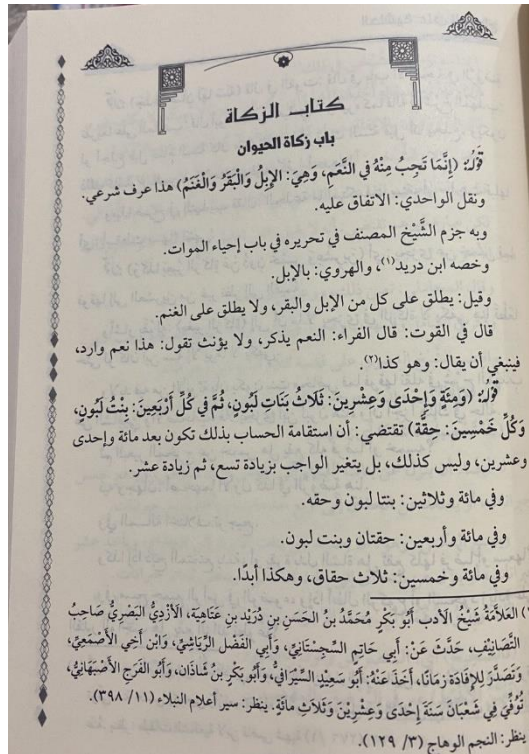 كتاب الزكاة
باب زكاة الحيوان
قَولُهُ: (إِنَّمَا تَجِبُ مِنْهُ فِي النَّعَمِ، وَهِيَ: الإِبِلُ وَالْبَقَرُ وَالْغَنَمُ) هذا عرف شرعي.
ونقل الواحدي: الاتفاق عليه.
وبه جزم الشَّيْخ المصنف في تحريره في باب إحياء الموات.
وخصه ابن دريد(١)، والهروي: بالإبل.
وقيل: يطلق على كل من الإبل والبقر، ولا يطلق على الغنم.
قال في القوت: قال الفراء: النعم يذكر، ولا يؤنث تقول: هذا نعم وارد،
فينبغي أن يقال: وهو كذا(٢).
قَولُهُ: (وَمِئَةٍ وَإِحْدَى وَعِشْرِينَ: ثَلَاثُ بَنَاتِ لَبُونٍ، ثُمَّ فِي كُلِّ أَرْبَعِينَ: بِنْتُ لَبُونٍ،
وَكُلِّ خَمْسِينَ: حِقَّة) تقتضي: أن استقامة الحساب بذلك تكون بعد مائة وإحدى
وعشرين، وليس كذلك، بل يتغير الواجب بزيادة تسع، ثم زيادة عشر.
وفي مائة وثلاثين: بنتا لبون وحقه.
وفي مائة وأربعين: حقتان وبنت لبون.
وفي مائة وخمسين: ثلاث حقاق، وهكذا أبدًا.
١) العَلَّامَةُ شَيْخُ الأدب أَبُو بَكْرٍ مُحَمَّدُ بنُ الحَسَنِ بنِ دُرَيْدِ بنِ عَتَاهِيَة، الأَزْدِيُّ البَصْرِيُّ صَاحِبُ
التَّصَانِيْفِ، حَدَّثَ عَنْ: أَبِي حَاتِمٍ السِّجِسْتَانِيِّ، وَأَبِي الفَضْلِ الرِّيَاشِيِّ، وَابْنِ أَخِي الأَصْمَعِيِّ،
وَتَصَدَّرَ لِلإِفَادَةِ زمَانًا، أَخَذَ عَنْهُ: أَبُو سَعِيْدٍ السِّيْرَافِيُّ، وَأَبُو بَكْرٍ بنُ شَاذَان، وَأَبُو الفَرَجِ الأَصْبَهَانِيُّ،
تُوُفِّيَ فِي شَعْبَانَ سَنَةَ إِحْدَى وَعِشْرِيْنَ وَثَلَاثِ مائَةٍ. ينظر: سير أعلام النبلاء (١١/ ٣٩٨).
ينظر: النجم الوهاج (٣/ ١٢٩).